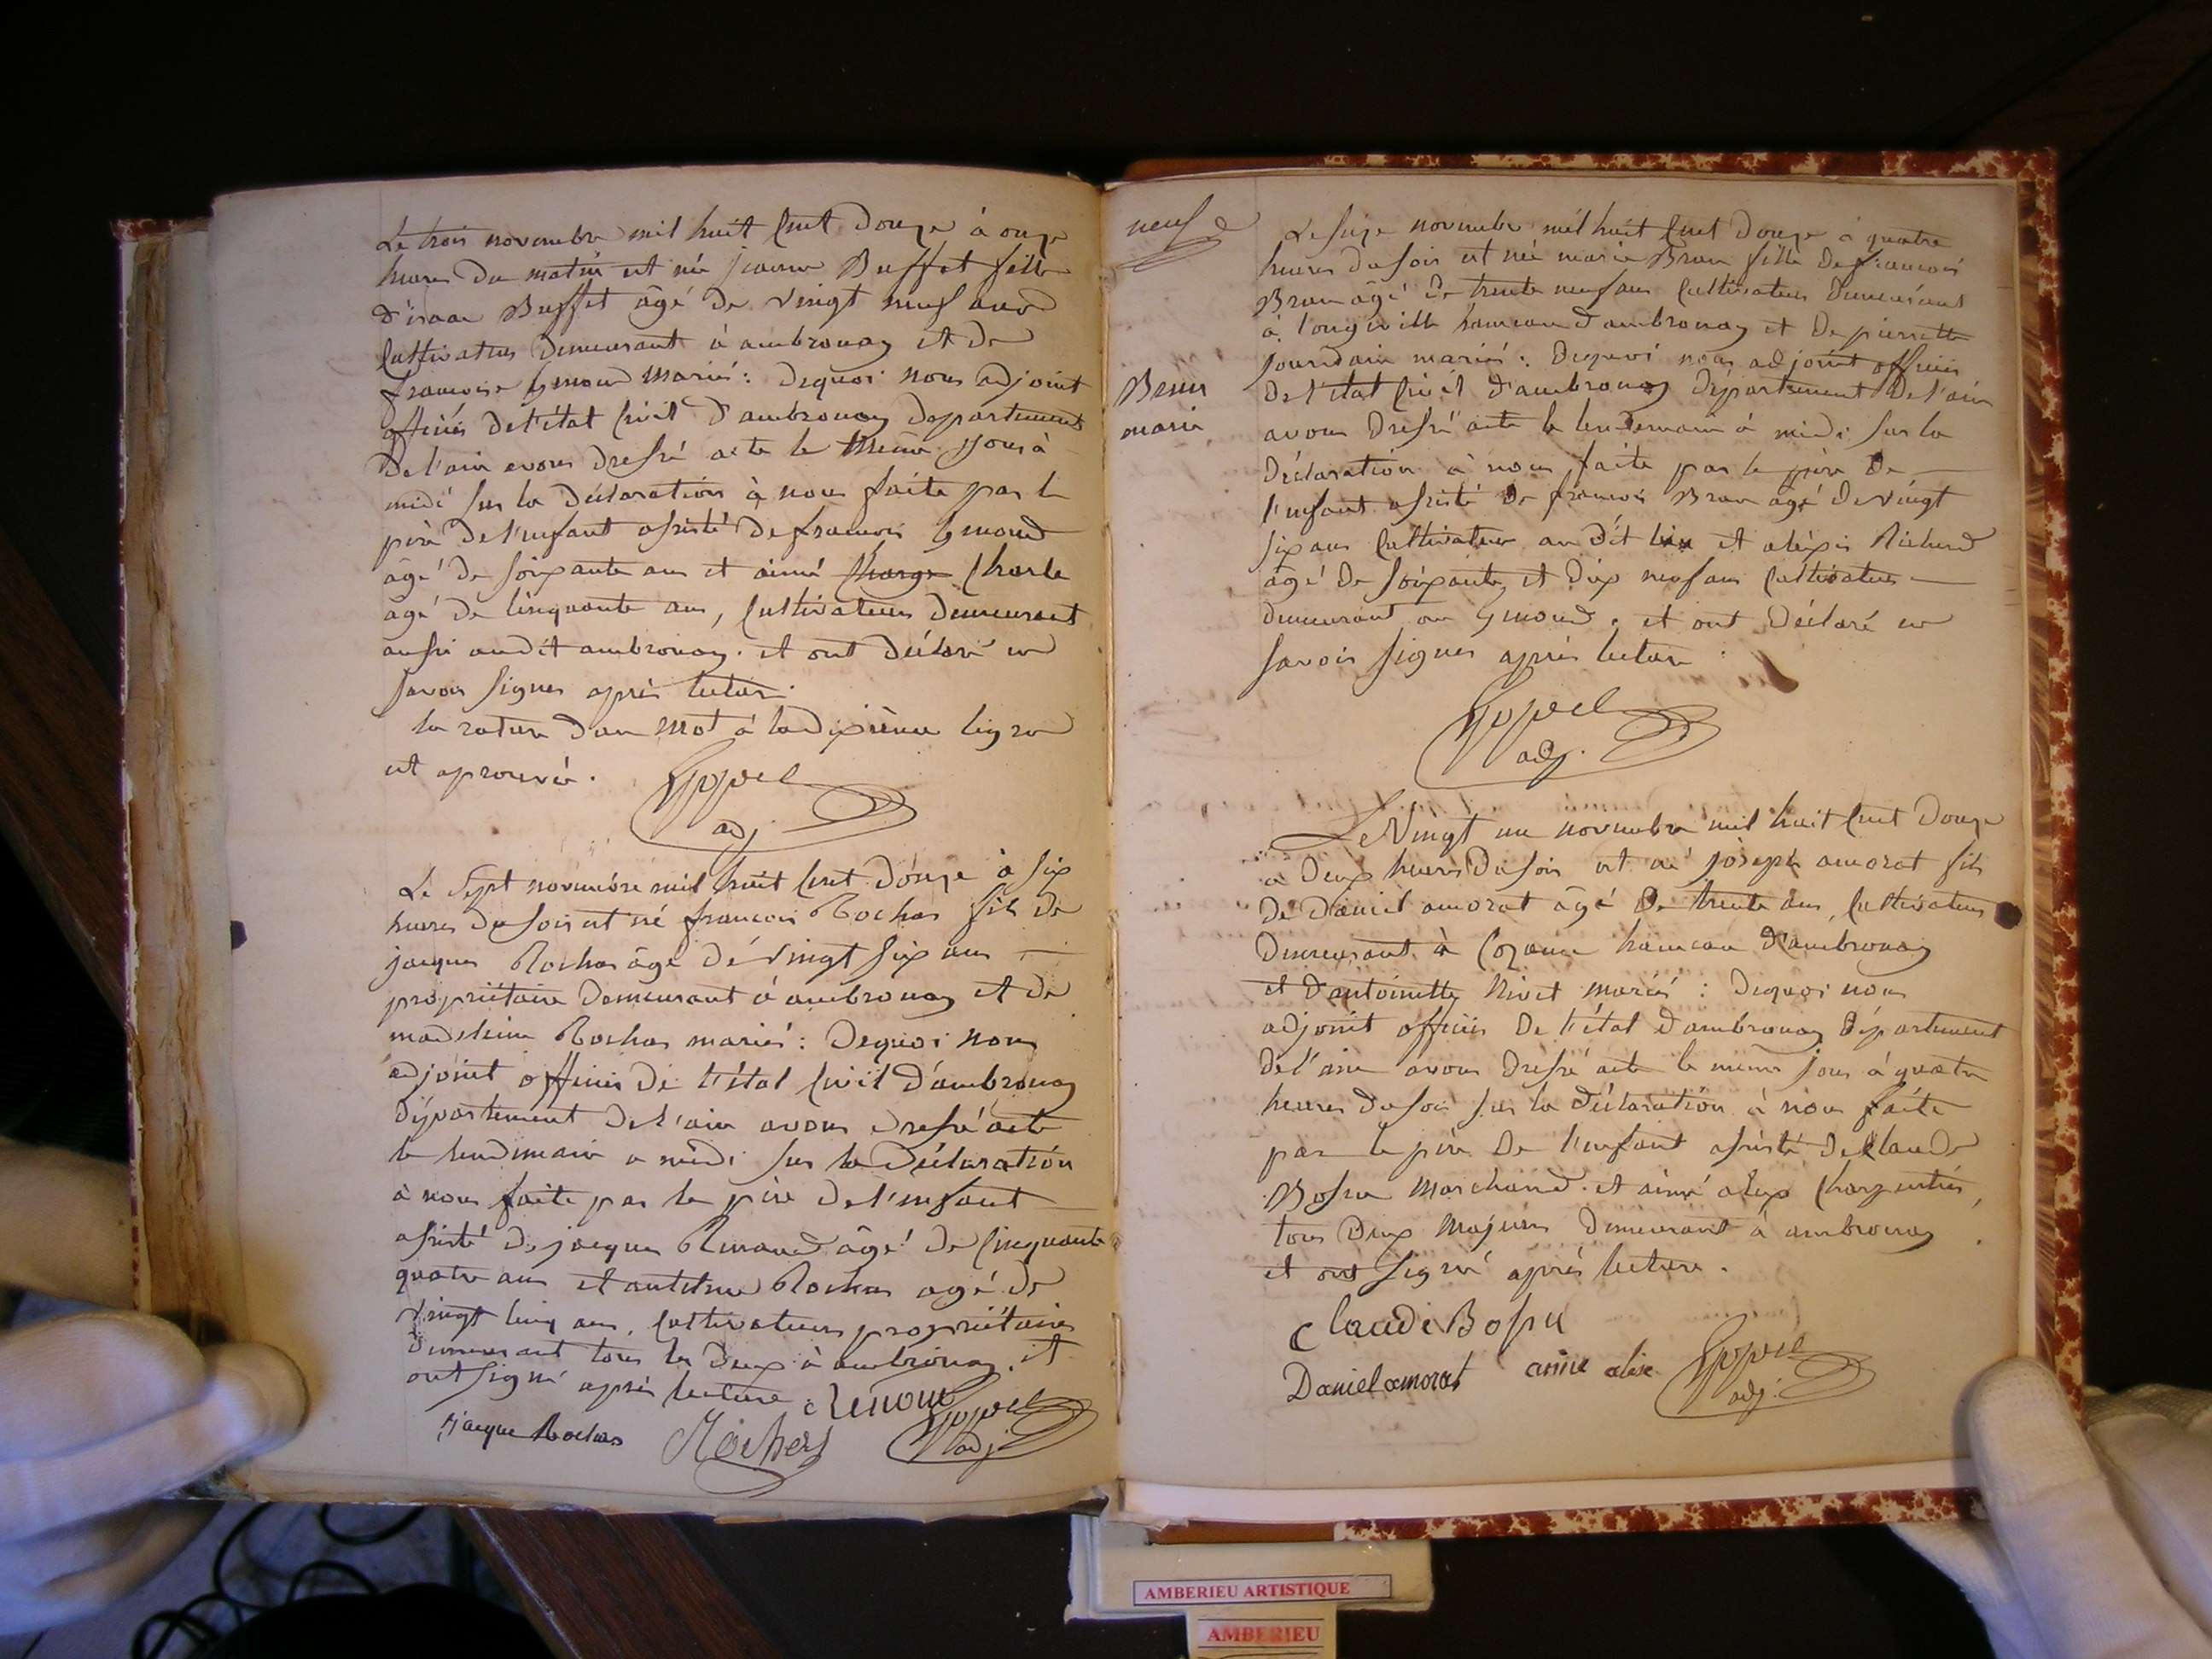 Le trois novembre mil huit cent douze à onze
heures du matin est née jeanne Buffet fille
d'isaac Buffet âgé de vingt neuf ans
cultivateur demeurant à ambronay et de
francoise gmond mariés : dequoi nous adjoint
officier de l'état civil d'ambronay departement
de l'ain avons dressé acte le meme jour à
midi sur la déclaration à nous faite par le
père de l'enfant assisté de francois gmond
âgé de soixante ans et aimé charge charle
agé de cinquante ans, cultivateurs demeurant
aussi audit ambronay. et ont déclaré ne
savoir signer après lecture.
la rature d'un mot à la dixième ligne
est aprouvée.
adj
Le sept novembre mil huit cent douze à six
heures du soir est né francois Rochas fils de
jacques Rochas âgé de vingt six ans —
propriétaire demeurant à ambronay et de
madeleine Rochas mariés : dequoi nous
adjoint officier de l'état civil d'ambronay
département de l'ain avons dressé acte
le lendemain a midi sur la déclaration
à nous faite par le père de l'enfant —
assisté de jacques Renaud âgé de cinquante
quatre ans et Rochas agé de
vingt cinq ans, cultivateurs propriétaires
demeurant tous les deux à ambronay, et
ont signé après lecture
jacque Rochas
adj
neuf
Brun
marie
Le seize novembre mil huit cent douze à quatre
heures du soir est née marie Brun fille de francois
Brun âgé de trente neuf ans cultivateur demeurant
à longeville hameau d'ambronay et de pierrette
jourdain mariés : dequoi nous adjoint officier
de l'état civil d'ambronay département de l'ain
avons dressé acte le lendemain à midi sur la
déclaration à nous faite par le père de —
l'enfant assisté de francois Brun âgé de vingt
six ans cultivateur au dit lieu et alexis Richerd
âgé de soixante et dix neuf ans cultivateur —
demeurant au gmond. et ont déclaré ne
savoir signer après lecture.
adj.
Le Vingt un novembre mil huit cent douze
à deux heures du soir est né joseph amorat fils
de daniel amorat âgé de trente ans, cultivateur
demeurant à Cozance hameau d'ambronay
et d'antoinette Nivet mariés : dequoi nous
adjoint officier de l'état d'ambronay département
de l'ain avons dressé acte le même jour à quatre
heures du soir sur la déclaration à nous faite
par le père de l'enfant assisté de claude
Bossu marchand et aimé alex charpentier,
tous deux majeurs demeurant à ambronay
et ont signé après lecture.
Claude Bossu
Daniel amorat
adj.
AMBERIEU ARTISTIQUE
AMBERIEU